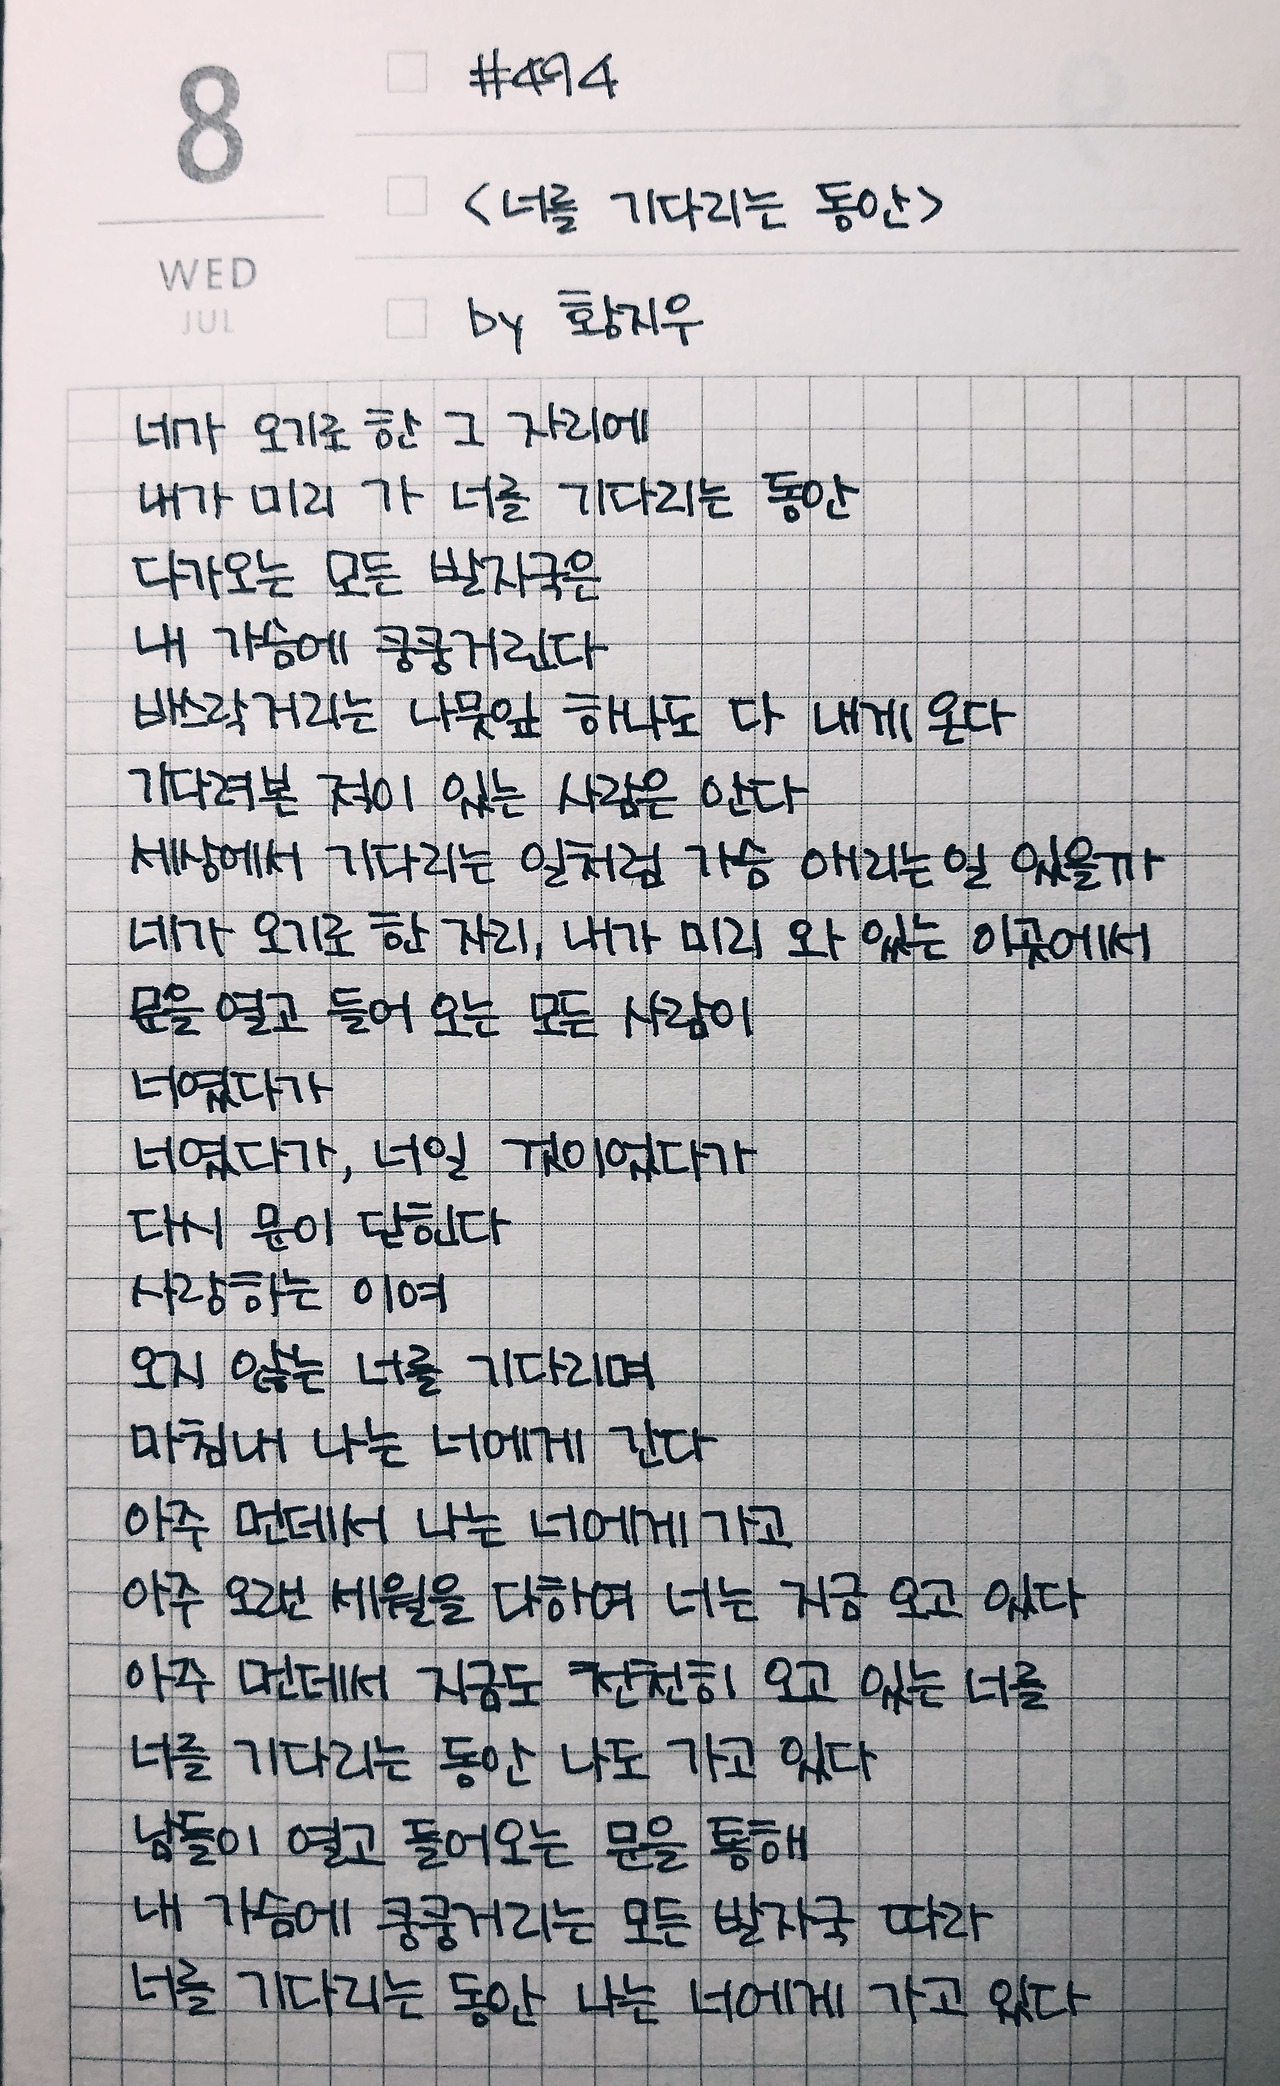 8
WED
JUL
#494
<너를 기다리는 동안>
by 황지우
네가 오기로 한 그 자리에
내가 미리 가 너를 기다리는 동안
다가오는 모든 발자국은
내 가슴에 쿵쿵거린다
바스락거리는 나뭇잎 하나도 다 내게 온다
기다려본 적이 있는 사람은 안다
세상에서 기다리는 일처럼 가슴 애리는 일 있을까
네가 오기로 한 자리, 내가 미리 와 있는 이곳에서
문을 열고 들어 오는 모든 사람이
너였다가
너였다가, 너일 것이었다가
다시 문이 닫힌다
사랑하는 이여
오지 않는 너를 기다리며
마침내 나는 너에게 간다
아주 먼데서 나는 너에게 가고
아주 오랜 세월을 다하여 너는 지금 오고 있다
아주 먼데서 지금도 천천히 오고 있는 너를
너를 기다리는 동안 나도 가고 있다
남들이 열고 들어오는 문을 통해
내 가슴에 쿵쿵거리는 모든 발자국 따라
너를 기다리는 동안 나는 너에게 가고 있다